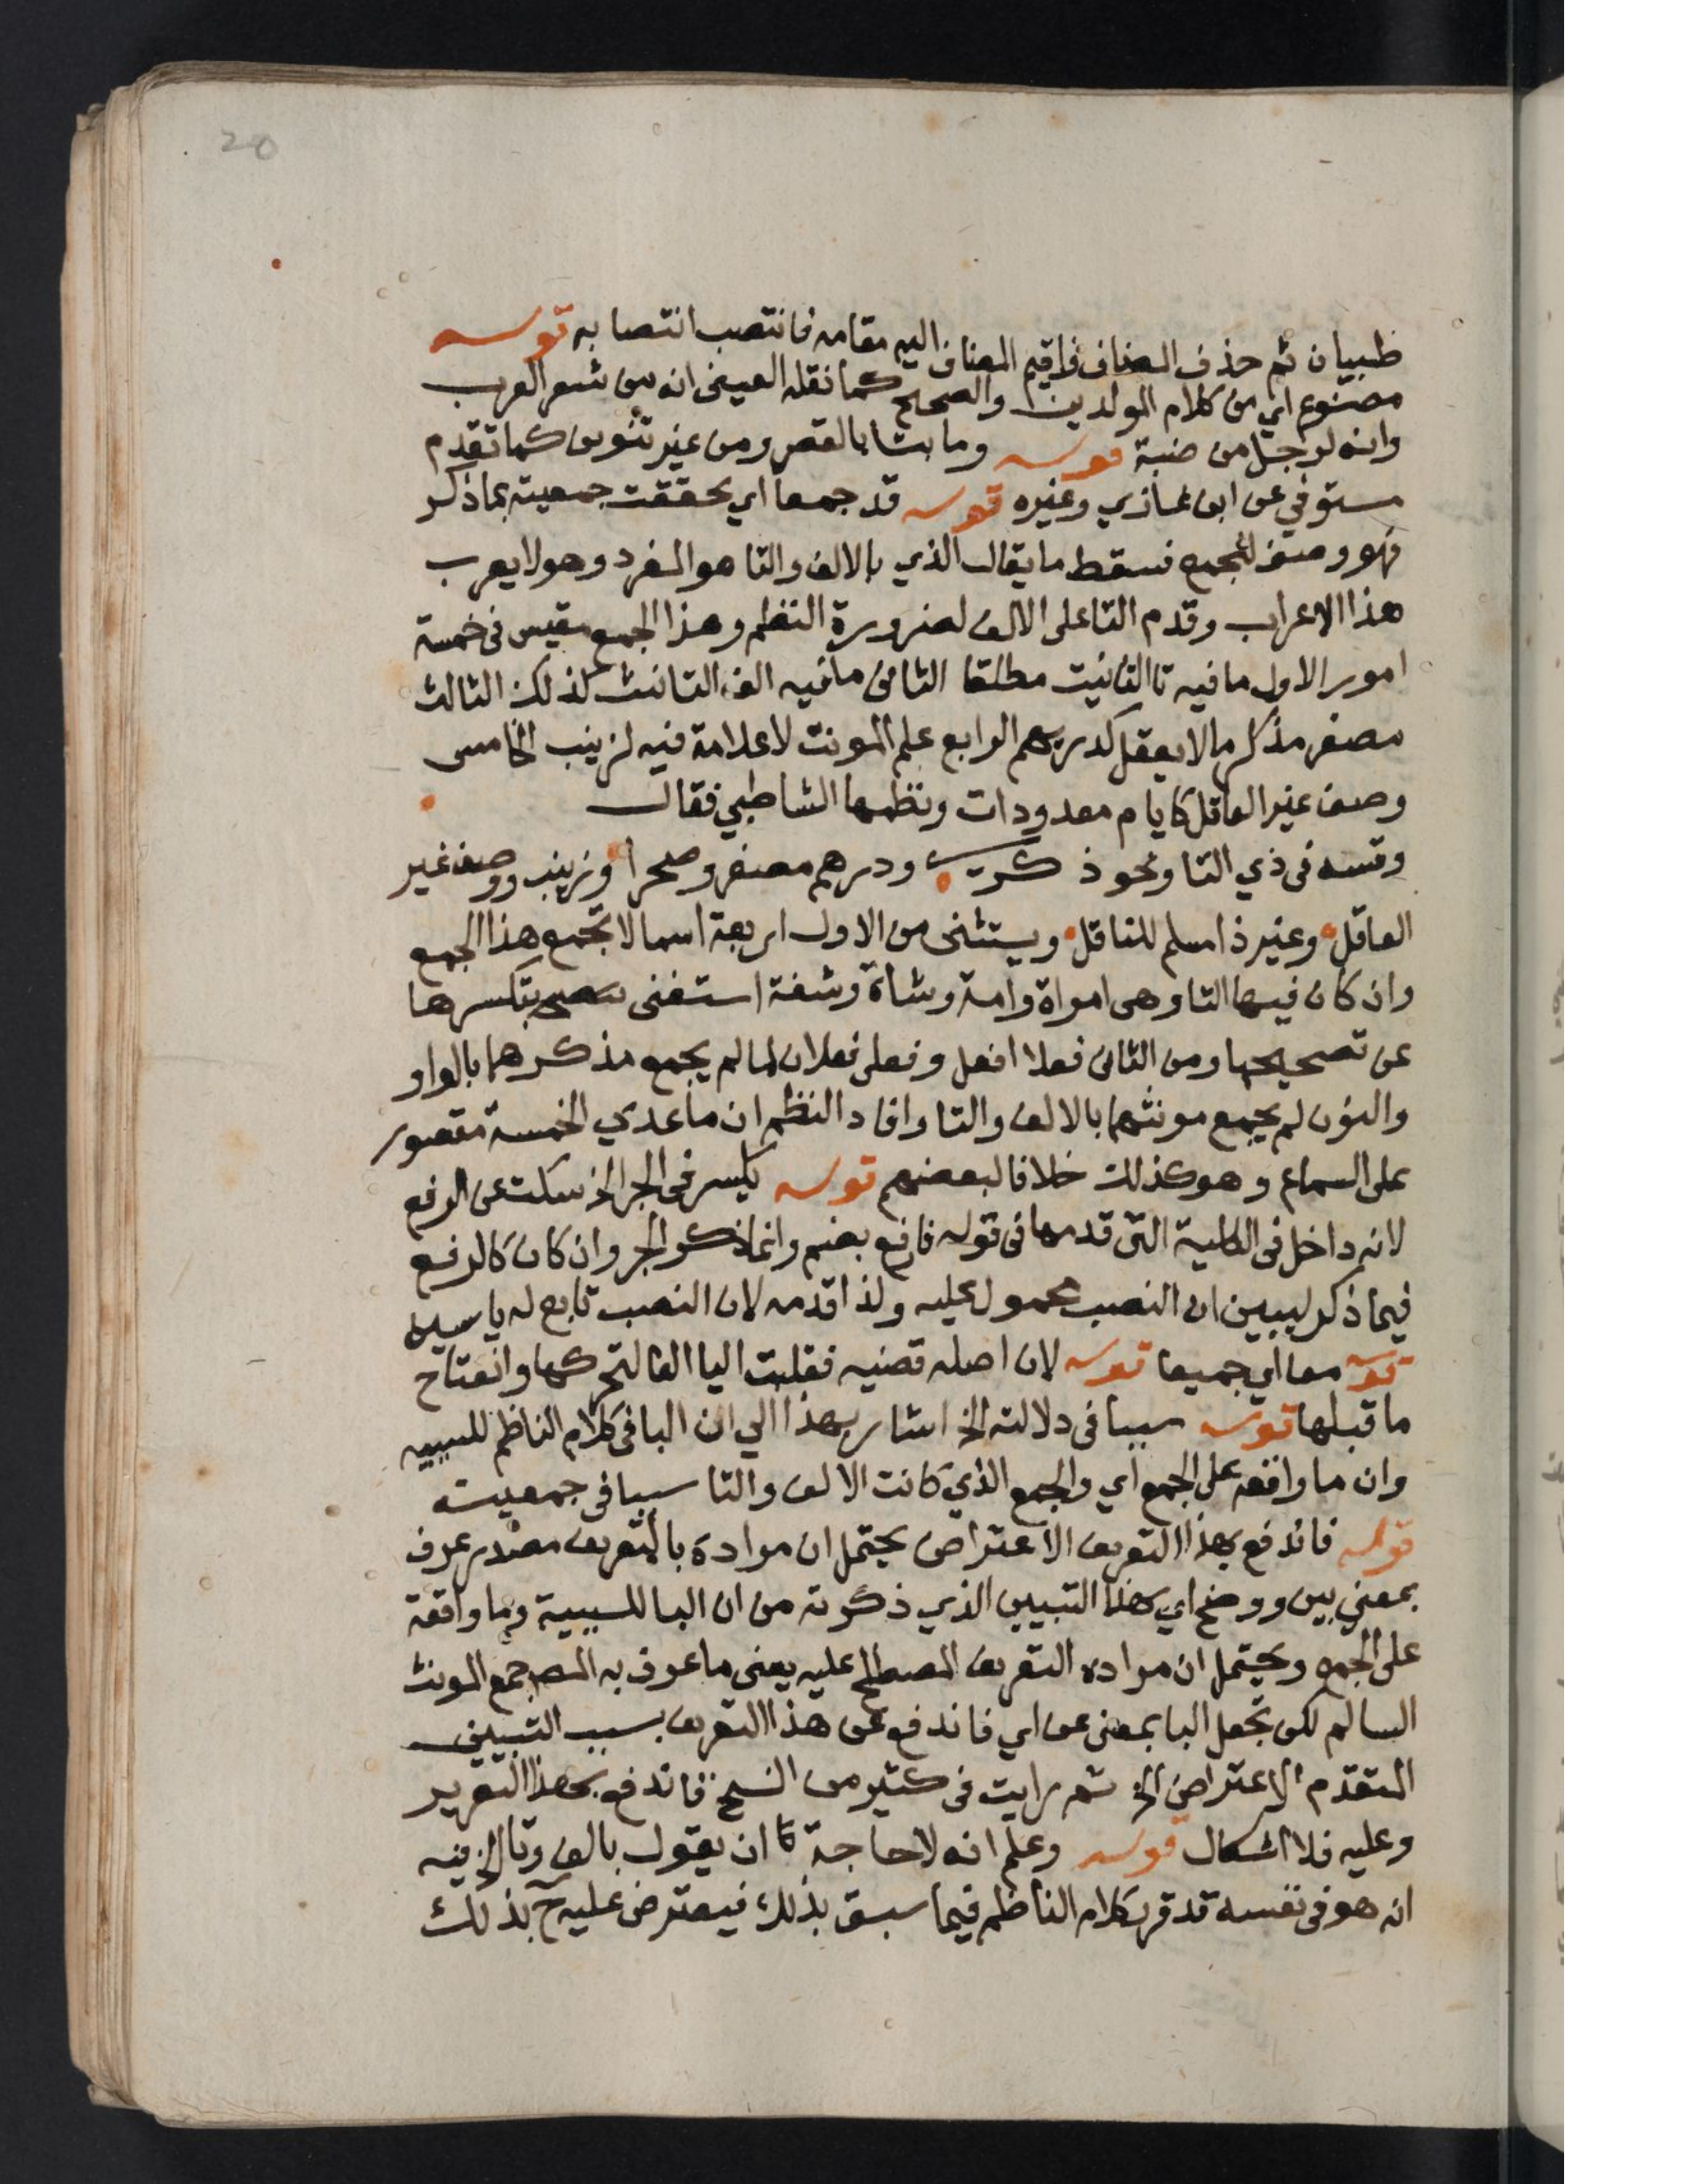 20
ظبيان ثم حذف المضاف فاقيم المضاف اليه مقامه فانتصب انتصابه قوله
مصنوع اي من كلام المولدين والصحيح كما نقله العيني انه من شعر العرب
وانه لرجل من ضبة قوله وما بتا بالقصر ومن غير تنوين كما تقدم
مستوفي عن ابن غازي وغيره قوله قد جمعا اي تحققت جمعيته بما ذكر
فهو وصف للجمع فسقط ما يقال الذي بالالف والتا هو المفرد وهو لا يعرب
هذا الاعراب وقدم التا على الالف لضرورة النظم وهذا الجمع مقيس في خمسة
امور الاول ما فيه تا التانيت مطلقا الثاني ما فيه الف التانيث كذلك الثالث
مصغر مذكر ما لا يعقل كدريهم الرابع علم المونث لا علامة فيه لزينب الخامس
وصف غير العاقل كايام معدودات ونظمها الشاطبي فقال
وقسه في ذي التا ونحو ذكرى ودرهم مصغر وصحرا وزينب ووصف غير
العاقل وغير ذا مسلم للناقل ويستثنى من الاول اربعة اسما لا تجمع هذا الجمع
وان كان فيها التا وهي امراة وامة وشاة وشفة استغنى بتكسرها
عن تصحيحها ومن الثاني فعلا افعل وفعلى فعلان لما لم يجمع مذكرهما بالواو
والنون لم يجمع مونثهما بالالف والتا وافاد النظم ان ما عدي الخمسة مقصور
على السماع وهو كذلك خلافا لبعضهم قوله يكسر في الجر الخ سكت عن الرفع
لانه داخل في الكلية التي قدمها في قوله فارفع بضم وانما ذكر الجر وان كان كالرفع
فيما ذكر ليبين ان النصب محمول عليه ولذا قدمه لان النصب تابع له ياسين
قوله معا اي جميعا قوله لان اصله قضيه فقلبت اليا الفا لتحركها وانفتاح
ما قبلها قوله سببا في دلالته الخ اشار بهذا الي ان البا في كلام الناظم للسببيه
وان ما واقعه على الجمع اي والجمع الذي كانت الالف والتا سببا في جمعيته
قوله فاندفع بهذا التعريف الاعتراض يحتمل ان مراده بالتعريف مصدر عرف
بمعني بين ووضح اي بهذا التبيين الذي ذكرته من ان البا للسببية وما واقعة
على الجمع ويحتمل ان مراده التعريف المصطلح عليه يعني ما عرف به المص جمع المونث
السالم لكن تجعل البا بمعنى عن اي فاندفع عن هذا التعريف بسبب التبيين
المتقدم الاعتراض الخ ثم رايت في كثير من النسخ فاندفع بهذا التقرير
وعليه فلا اشكال قوله وعلم انه لا حاجة ان يقول بالف وتا الخ فيه
انه هو في نفسه قد قرر كلام الناظم فيما سبق بذلك فيعترض عليه ح بذلك